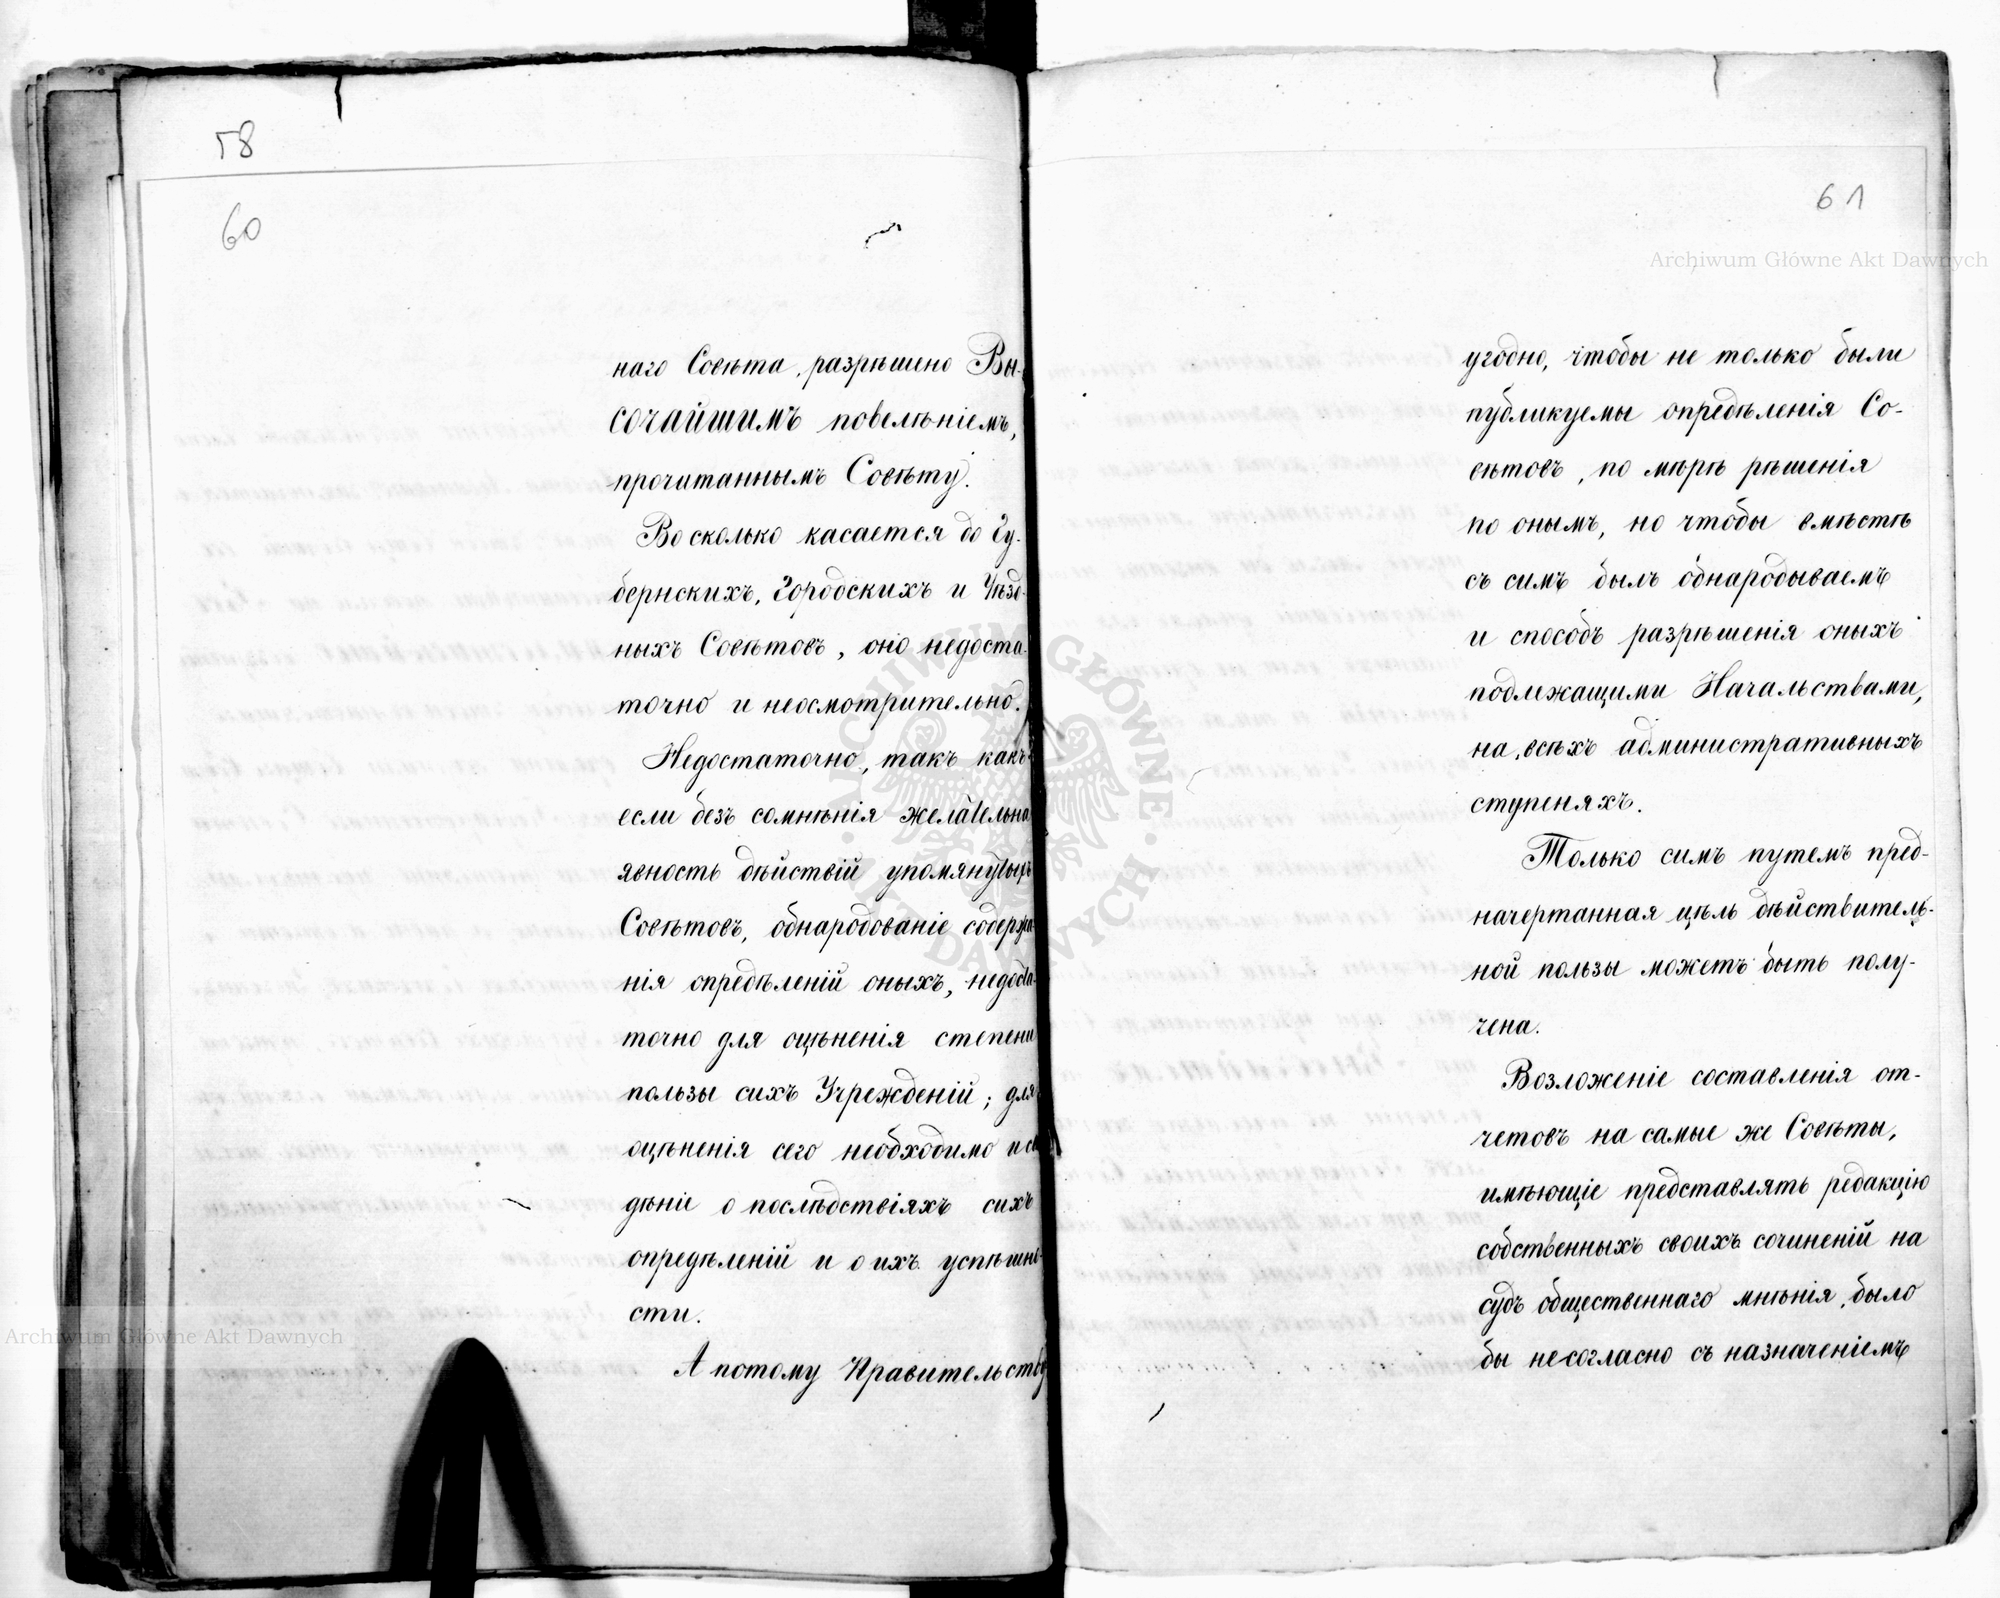 58
60
наго Совѣта, разрѣшено Вы-
сочайшимъ повелѣніемъ,
прочитаннымъ Совѣту.
Во сколько касается до Гу-
бернскихъ, Городскихъ и Уѣзд-
ныхъ Совѣтовъ, оно недоста-
точно и неосмотрительно.
Недостаточно, такъ какъ
если безъ сомнѣнія желательна
явность дѣйствій упомянутыхъ
Совѣтовъ, обнародованіе содержа-
нія опредѣленій оныхъ, недоста-
точно для оцѣненія степени
пользы сихъ Учрежденій; для
оцѣненія сего необходимо
дѣніе о послѣдствіяхъ сихъ
опредѣленій и о ихъ успѣшно-
сти.
А потому Правительству
61
Archiwum Główne Akt Dawnych
угодно, чтобы не только были
публикуемы опредѣленія Со-
вѣтовъ, по мѣрѣ рѣшенія
по онымъ, но чтобы вмѣстѣ
съ симъ былъ обнародываемъ
и способъ разрѣшенія оныхъ
подлежащими Начальствами,
на всѣхъ административныхъ
ступеняхъ.
Только симъ путемъ пред-
начертанная цѣль дѣйствитель-
ной пользы можетъ быть полу-
чена.
Возложеніе составленія от-
четовъ на самые же Совѣты,
имѣющіе представлять редакцію
собственныхъ своихъ сочиненій на
судъ общественнаго мнѣнія, было
бы несогласно съ назначеніемъ
ARCHIWUM GŁÓWNE AKT DAWNYCH
Archiwum Główne Akt Dawnych